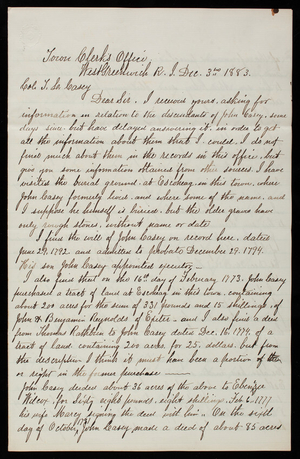 Town Clerk's Office,
West Greenwich R. I. Dec. 3rd 1883.
Col. T. L. Casey
Dear Sir, I received yours, asking for
information in relation to the descendants of John Casey, some
days since, but have delayed answering it, in order to get
all the information about them that I could. I do not
find much about them in the records in this office, but
give you some information obtained from other sources. I have
visited the burial ground, at Escoheag, in this town, where
John Casey formerly lived, and where some of the name, and
I suppose he himself is buried, but the older graves have
only rough stones, without name or date.
I find the will of John Casey on record here, dated
June 29, 1792, and admitted to probate December 29, 1794.
His son John Casey appointed executor—
I also find that on the 16th day of February 1773, John Casey
purchased a tract of land at Escoheag in this town containing
about 200 acres for the sum of 331 pounds and 15 shillings of
John & Benjamin Reynolds of Exeter— and I also find a deed
from Thomas Rathbun to John Casey dated Dec. 15, 1774, of a
tract of land containing 200 acres for 25. dollars, but from
the description I think it must have been a portion of the
or right in the former purchase—
John Casey deeded about 36 acres of the above to Ebenezer
Wilcox, for Sixty eight pounds, eight shillings, Feb 6, 1777
his wife Mercy signing the deed with him. On the sixth
day of October, 1791 John Casey made a deed of about 85 acres